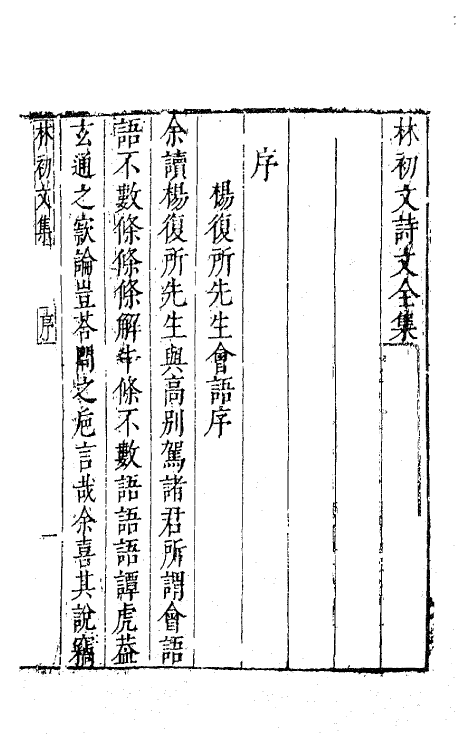 林初文詩文全集
序
楊復所先生會語序
余讀楊復所先生與高別駕諸君所謂會語
語不數條條條解牛條不數語語語譚虎葢
玄通之㝡論豈荅問之巵言哉余喜其說竊
林初文集 序 一